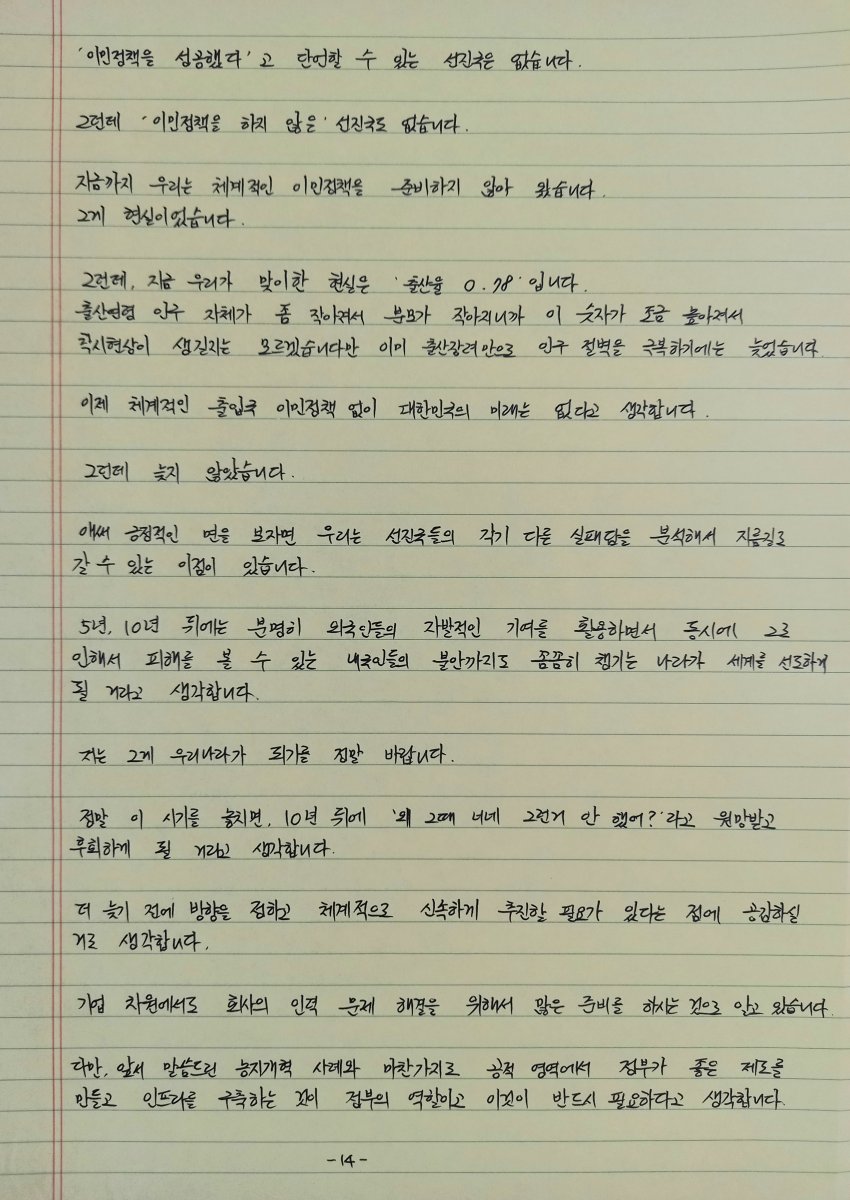 '이민정책을 성공했다'고 단언할 수 있는 선진국은 없습니다.
그런데 '이민정책을 하지 않은' 선진국도 없습니다.
지금까지 우리는 체계적인 이민정책을 준비하지 않아 왔습니다.
그게 현실이었습니다.
그런데, 지금 우리가 맞이한 현실은 '출산율 0.78'입니다.
출산연령 인구 자체가 좀 작아져서 분모가 작아지니까 이 숫자가 조금 높아져서
착시현상이 생길지는 모르겠습니다만 이미 출산장려만으로 인구 절벽을 극복하기에는 늦었습니다
이제 체계적인 출입국 이민정책 없이 대한민국의 미래는 없다고 생각합니다.
그런데 늦지 않았습니다.
애써 긍정적인 면을 보자면 우리는 선진국들의 각기 다른 실패담을 분석해서 지름길로
갈 수 있는 이점이 있습니다.
5년, 10년 뒤에는 분명히 외국인들의 자발적인 기여를 활용하면서 동시에 그로
인해서 피해를 볼 수 있는 내국인들의 불안까지도 꼼꼼히 챙기는 나라가 세계를 선도하게
될 거라고 생각합니다.
저는 그게 우리나라가 되기를 정말 바랍니다.
정말 이 시기를 놓치면, 10년 뒤에 '왜 그때 너네 그런거 안 했어?'라고 원망받고
후회하게 될 거라고 생각합니다.
더 늦기 전에 방향을 정하고 체계적으로 신속하게 추진할 필요가 있다는 점에 공감하실
거로 생각합니다.
기업 차원에서도 회사의 인력 문제 해결을 위해서 많은 준비를 하시는 것으로 알고 있습니다.
다만, 앞서 말씀드린 농지개혁 사례와 마찬가지로 공적 영역에서 정부가 좋은 제도를
만들고 인프라를 구축하는 것이 정부의 역할이고 이것이 반드시 필요하다고 생각합니다.
-14-